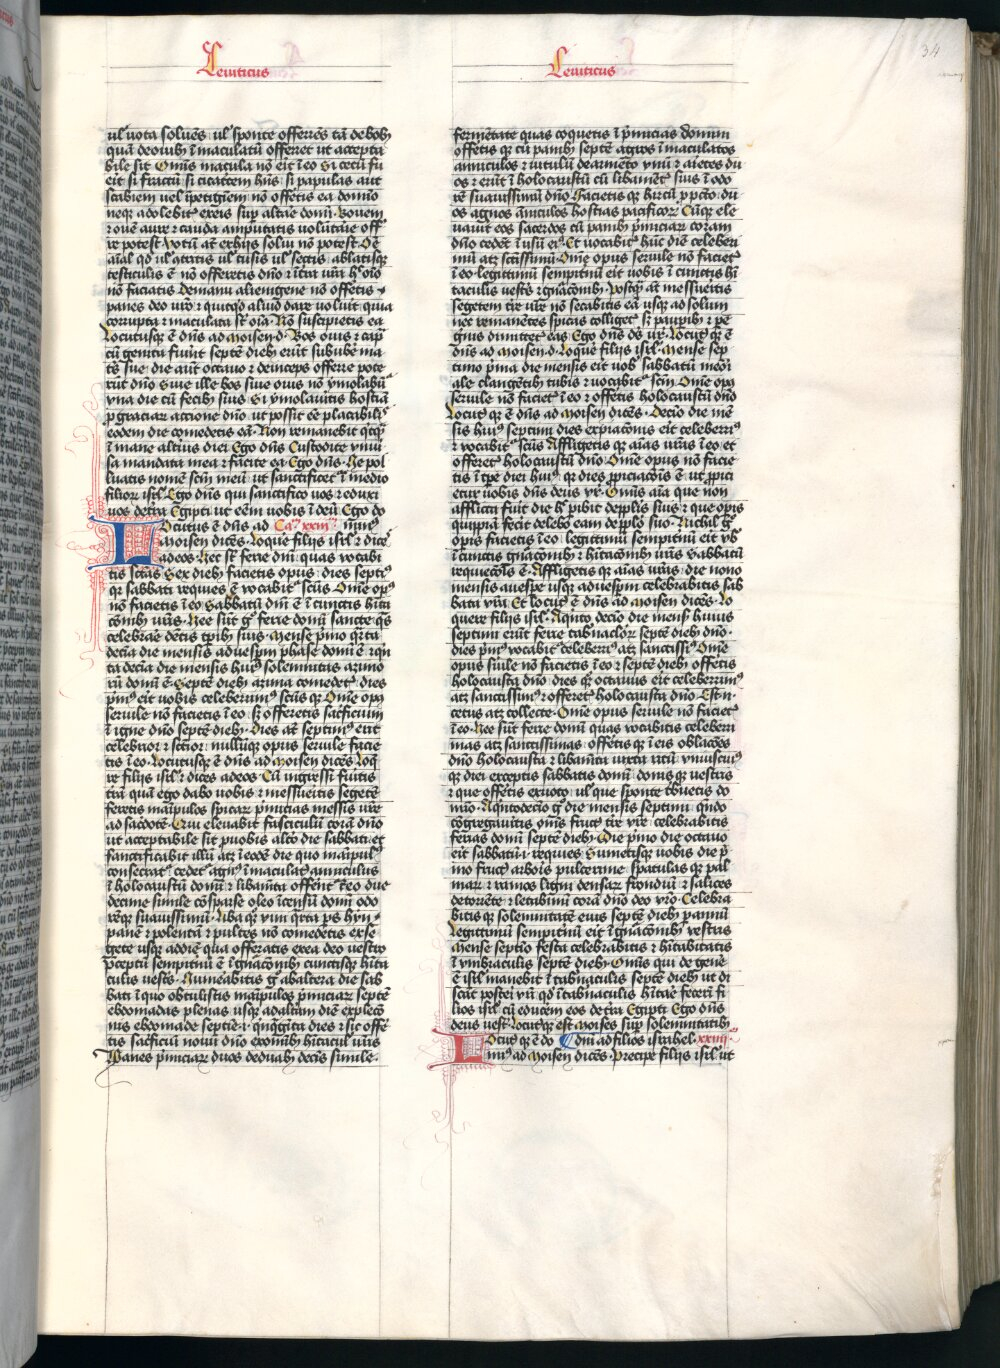 Leuiticus
Leuiticus
34
ul' uota soluēs ul' sponte offerēs tā de bob3
quā de ouib3 īmaculatū offeret ut accepta
bile sit Omīs macula nō erit ī eo Si cecū fu
erit si fractū si cicatricem hn̄s si papulas aut
scabiem uel ipetiginem nō offeretis ea domīo
neq3 adolebitꝭ ex eis sup altare domī Bouem
⁊ ouē aure ⁊ cauda amputatis uolūtarie off'r
re potest Votū at̄ ex hijs solui nō potest Oē
aīal qd' ul' 9tritis ul' tusis ul' sectis ablatisq3
testiculis ē nō offeretis dn̄o ⁊ ī tra vr̄a h' oīo
nō faciatis De manu alienigene nō offeretis
panes deo vr̄o ⁊ quitqd' aliud dare uoluit quia
corrupta ⁊ maculata st̄ oīa Nō suscipietis ea
Locutusq3 ē dn̄s ad moisen d' Bos ouis ⁊ cap̄
cū genita fuīnt septē dieb3 erūt sub ube ma
t's sue die aūt octauo ⁊ deinceps offerre pote
rūt dn̄o Siue ille bos siue ouis nō ymolabū
vna die cū fetib3 suis Si ymolauitis hostiā
p grāciaꝝ accione dn̄o ut possit eē placabil'
eodem die comedetis eā Non remanebit qcq3
ī mane alt'ius diei Ego dn̄s Custodite
mandata mea ⁊ facite ea Ego dn̄s Ne pol
luatis nomē scm̄ meū ut sanctificer ī medio
filioꝝ isrl' Ego dn̄s qui sanctifico uos ⁊ eduxi
uos de tra Egipti ut eēm uobis ī deū Ego do
Locutus ē dn̄s ad Ca3 xxiii minꝰ
moisen dicēs Loquere filijs isrl' ⁊ dic'
ad eos Hec st̄ ferie dn̄i quas vocabi
tis sctās Sex dieb3 facietis opus dies septīꝰ
q sabbati requies ē vocabitꝭ scūs Omē opꝰ
nō facietis ī eo Sabbatū dn̄i ē ī cunctis hīta
cōnib3 vr̄is Hee sūt g' ferie domī sancte qs
celebrāe debetis tpib3 suis Mense p'mo q̄rta
decīa die mensis ad uesp̄m phase domī ē ⁊ qn̄
ta decīa die mensis huiꝰ solemnitas azimo
rū domī ē Septē dieb3 azima comedetꝭ dies
p'mꝰ erit uobis celeberrimꝰ scūsq3 Omē opꝰ
seruile nō facietis ī eo s3 offeretis sacficium
ī igne dn̄o septē dieb3 Dies at̄ septimꝰ erit
celebrior ⁊ scior nullūq3 opus seruile facie
tis ī eo Locutusq3 ē dn̄s ad moisen dicēs Loq̄
re filijs isrl' ⁊ dices ad eos Cū ingressi fuītis
trā quā ego dabo uobis ⁊ messueitis segetē
feretis maīpulos spicaꝝ p'micias messis vr̄e
ad sacdotē Qui eleuabit fasciculū corā dn̄o
ut acceptabile sit p uobis alt'o die sabbati et
sanctificabit illū atq3 ī eodē die quo maīpulꝰ
consecrat' cedetꝭ agnꝰ īmaculatꝰ anniculus
ī holocaustū domī ⁊ libamīa offerent' cū eo due
decime simile cōsparse oleo īcensū domī odo
rēq3 suauissimū Libaq3 vini q̄rta ps hyn
panē ⁊ polentā ⁊ pultes nō comedetis ex se
gete usq3 ad diē qua offeratis ex ea deo vestro
p̄ceptū sempitnū ē ī gnāconib3 cunctisq3 hīta
culis vest's Numeabitis g' ab alt'a die sab
bati ī quo obtulistis maīpulos p'miciaꝝ septē
ebdomadas plenas usq3 ad alt'am diē explecō
nis ebdomade septīe ·i· qn̄q̄gīta dies ⁊ sic offe
tis sacficiū nouū dn̄o ex omīb3 hitacul' vr̄is
Panes p'miciaꝝ duos de duab3 decīs simile
fermētate quas coquetis ī p'micias domini
offetis q3 cū panib3 septē agnos īmaculatos
anniculos ⁊ uitulū de armēto vnū ⁊ arietes du
os ⁊ erūt ī holocaustū cū libamētꝭ suis ī odo
rē suauissimū dn̄o Facietis q3 hircū p pctō du
os agnos āniculos hostias pacificoꝝ Cūq3 ele
uauit eos sacerdos cū panib3 p'miciaꝝ coram
dn̄o cedēt ī usū eiꝰ Et uocabitꝭ hūc diē celeberi
mū atq3 sctissimū Omē opus seruile nō facietꝭ
ī eo legittimū sempitnū erit uobis ī cunctis hī
taculis vestꝭs ⁊ gnāconib3 Postq̄ at̄ messueitis
segetem t're vr̄e nō secabitis eā usq3 ad solum
nec remanētes spicas colligetꝭ s3 paupib3 ⁊ pe
ginis dimittetꝭ eas Ego dn̄s ds̄ vr̄ Locutꝰ q3 ē
dn̄s ad moisen d' Loquē filijs isrl' Mense sep
timo p'ma die mensis erit uob' sabbatū mēori
ale clangētib3 tubis ⁊ vocabitꝭ scm̄ Omē opꝰ
seruile nō facietꝭ ī eo ⁊ offetis holocaustū dn̄o
Locutꝰ q3 ē dn̄s ad moisen dicēs Decīo die mē
sis huiꝰ septimi dies expiacōnis erit celeberrīꝰ
⁊ vocabitꝭ scūs Affligetis q3 aīas vr̄as ī eo et
offeretꝭ holocaustū dn̄o Omē opus nō facie
tis ī tpe diei huiꝰ q3 dies ppiciacōis ē ut ppici
etur uobis dn̄s deus vr̄ Omīs aīa que non
afflicti fuit die hꝰ pibit de pplis suis ⁊ que opis
quippiā fecit delebo eam de pplo suo Nichil g'
opis facietis ī eo legittimū sempitnū erit vb'
ī cunctis gnāconib3 ⁊ hitaconib3 vr̄is Sabbatū
requiecōis ē Affligetis q3 aīas vr̄as die nono
mensis a uespe usq3 ad uespm̄ celebrabitis sab
bata vr̄a Et locutꝰ ē dn̄s ad moisen dicēs Lo
quere filijs isrl' A quīto decīo die mensꝭ huius
septimi erūt ferie tabnacloꝝ septē dieb3 dn̄o
dies p'mꝰ vocabitꝭ celeberrīꝰ atq3 sanctissīꝰ Omē
opus s'uile nō facietis ī eo ⁊ septē dieb3 offetis
holocausta dn̄o dies q3 octauus erit celeberrimꝰ
atq3 sanctissimꝰ ⁊ offeretꝭ holocausta dn̄o Est n̄
cetus atq3 collecte Omē opus seruile nō facietꝭ
ī eo Hee sūt ferie domī quas vocabitis celeberi
mas atq3 sanctissimas offetis q3 ī eis oblacōes
dn̄o holocausta ⁊ libamīa iuxta ritū vniuscuiꝰ
q3 diei exceptis sabbatis domī donisq3 vestris
⁊ que offetis ex uoto ul' que sponte tbuetis do
mīo A quītodecīo g' die mensis septimi qn̄do
cōgregauitis om̄s fructꝰ t're vr̄e celebrabitis
ferias domī septē dieb3 Die p'mo die octauo
erit sabbatū ·i· requies Sumetisq3 uobis die p'
mo fructꝰ arboris pulcerime spatulasq3 pal
maꝝ ⁊ ramos ligni densaꝝ frondiū ⁊ salices
de torrēte ⁊ letabīmī corā dn̄o deo vr̄o Celebra
bitis q3 solemnitatē eius septē dieb3 p annū
Legittimū sempitnū erit ī gnāconib3 vestris
Mense septīo festa celebrabitis ⁊ hitabitatis
ī vmbraculis septē dieb3 Omīs qui de gene
ē isrl' manebit ī tabnaculis septē dieb3 ut di
scāt postei vr̄i qd' ī tabnaculis hitāe fecerī fi
lios isrl' cū educem eos de tra Egipti Ego dn̄s
deus vest' Locutꝰ q3 est moises sup solemnitatib3
Locutꝰ q3 ē do dn̄i ad filios israhel xxiiii
minꝰ ad moisen dicēs Precipe filijs isrl' ut